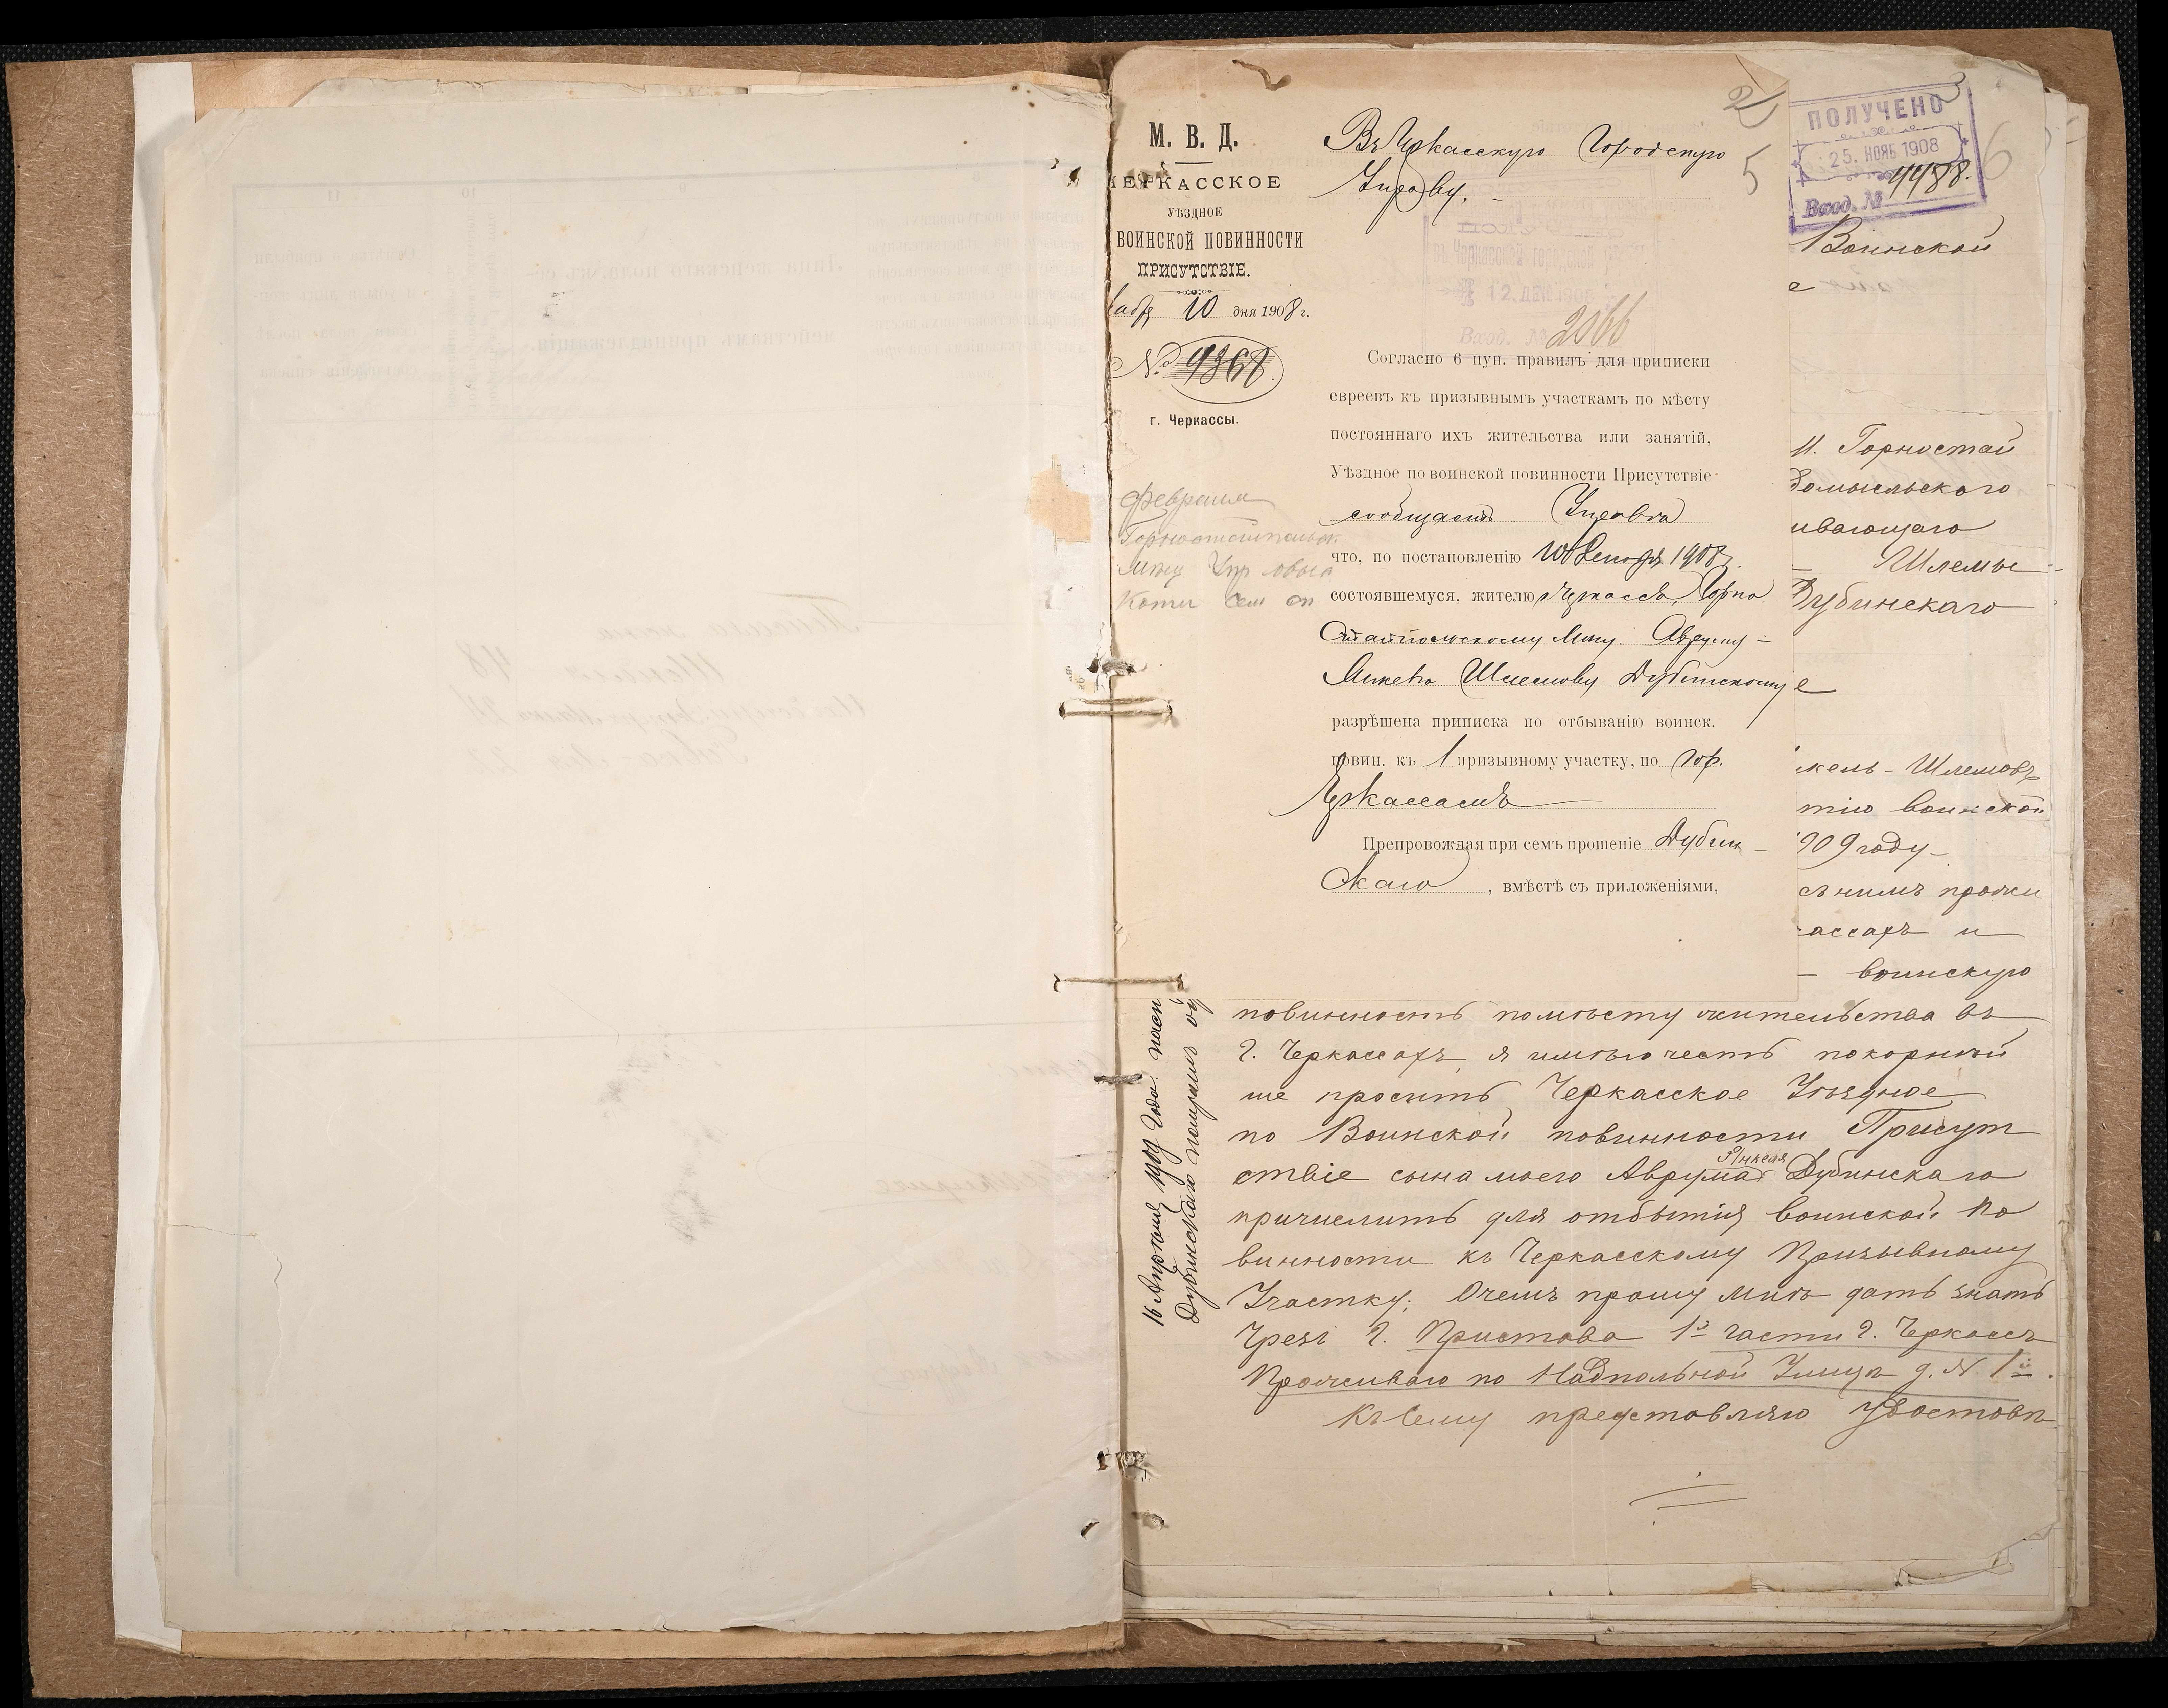 М. В. Д.
ЧЕРКАССКОЕ
УѢЗДНОЕ
ВОИНСКОЙ ПОВИННОСТИ
ПРИСУТСТВІЕ.
10 дня 1908 г.
№ 9368
г. Черкассы.
Февраля
Въ Черкасскую Городскую
Управу.
2
5
12. ДЕК 1908
Вход. № 2066
Согласно 6 пун. правилъ для приписки
евреевъ къ призывнымъ участкамъ по мѣсту
постояннаго ихъ жительства или занятій,
Уѣздное по воинской повинности Присутствіе
сообщаетъ Управѣ
что, по постановленію 10 Декабря 1908 г.
состоявшемуся, жителю г. Черкассъ, Горно
стайпольскому мѣщ. Авруму-
Янкелю Шлемову Дубинскому
разрѣшена приписка по отбыванію воинск.
повин. къ 1 призывному участку, по гор.
Черкассамъ
Препровождая при семъ прошеніе Дубин-
скаго, вмѣстѣ съ приложеніями,
3
6
ПОЛУЧЕНО
25. НОЯБ 1908
Вход. № 4488.
Воинской
е
М. Горностай
домысльскаго
ивающаго
Шлемы
Дубинскаго
е
нкель-Шлемовъ
тію воинской
1909 году
съ нимъ прожи
кассахъ и
- воинскую
повинность по мѣсту жительства въ
г. Черкассахъ, я имѣю честь покорнѣй
ше просить Черкасское Уѣздное
по Воинской повинности Присут
ствіе сына моего Аврума Янкеля Дубинскаго
причислить для отбытія воинской по
винности къ Черкасскому Призывному
Участку; О чемъ прошу мнѣ дать знать
Чрезъ г. Пристава 1й части г. Черкассъ
Проживаю по Надпольной Улицѣ д. № 1й.
Къ сему представляю удостовѣ
16 Апрѣля 1909 года
Дубинскаго получилъ